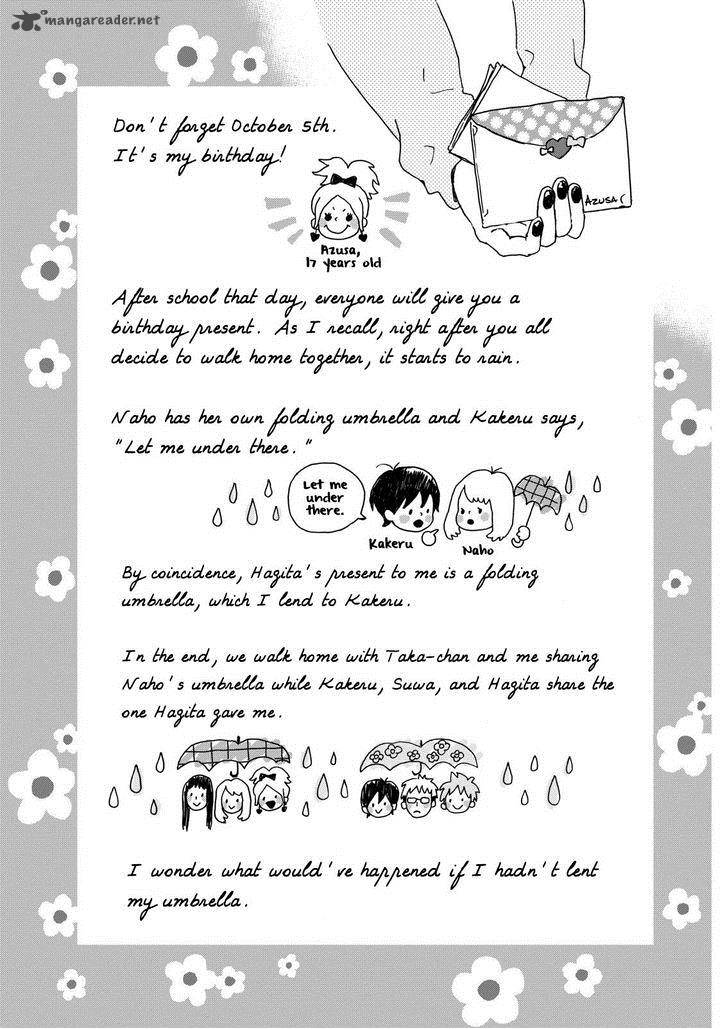 mangareader.net
Don't forget October 5th.
It's my birthday!
AZUSA (
Azusa,
17 years old
After school that day, everyone will give you a
birthday present. As I recall, right after you all
decide to walk home together, it starts to rain.
Naho has her own folding umbrella and Kakeru says,
"Let me under there."
Let me
under
there.
Kakeru
Naho
By coincidence, Hagita's present to me is a folding
umbrella, which I lend to Kakeru.
In the end, we walk home with Taka-chan and me sharing
Naho's umbrella while Kakeru, Suwa, and Hagita share the
one Hagita gave me.
I wonder what would've happened if I hadn't lent
my umbrella.